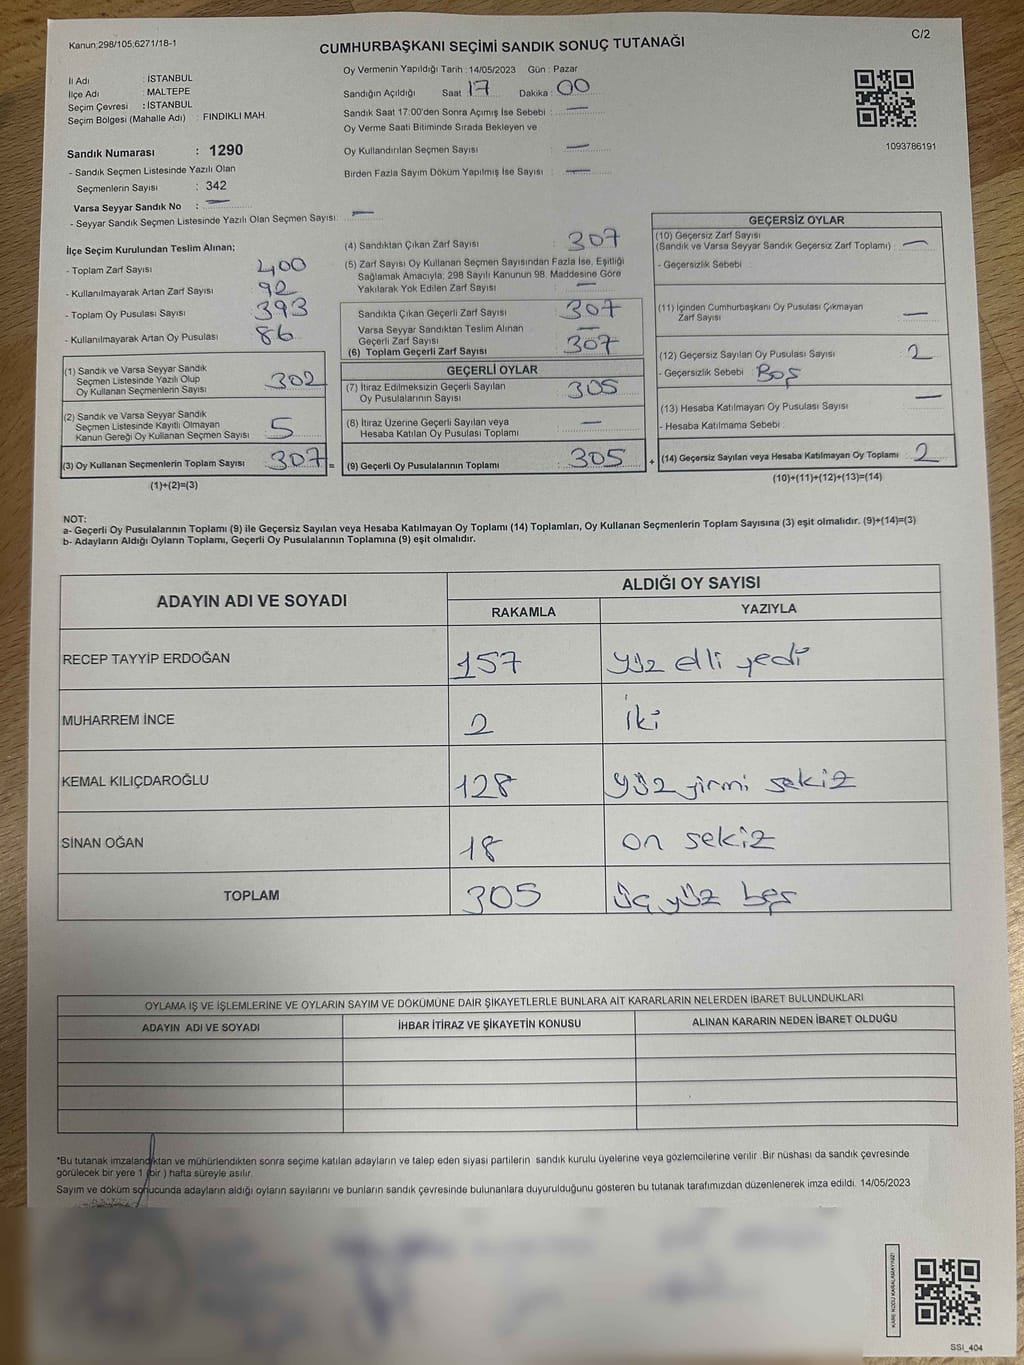 Kanun;298/105;6271/18-1
C/2
CUMHURBAŞKANI SEÇİMİ SANDIK SONUÇ TUTANAĞI
İl Adı : İSTANBUL
İlçe Adı : MALTEPE
Seçim Çevresi : İSTANBUL
Seçim Bölgesi (Mahalle Adı) : FINDIKLI MAH.
Sandık Numarası : 1290
- Sandık Seçmen Listesinde Yazılı Olan
Seçmenlerin Sayısı : 342
Varsa Seyyar Sandık No : —
- Seyyar Sandık Seçmen Listesinde Yazılı Olan Seçmen Sayısı: —
Oy Vermenin Yapıldığı Tarih : 14/05/2023 Gün : Pazar
Sandığın Açıldığı Saat 17 Dakika : 00
Sandık Saat 17:00'den Sonra Açımış İse Sebebi : —
Oy Verme Saati Bitiminde Sırada Bekleyen ve
Oy Kullandırılan Seçmen Sayısı —
Birden Fazla Sayım Döküm Yapılmış İse Sayısı : —
1093786191
İlçe Seçim Kurulundan Teslim Alınan;
- Toplam Zarf Sayısı 400
- Kullanılmayarak Artan Zarf Sayısı 92
- Toplam Oy Pusulası Sayısı 393
- Kullanılmayarak Artan Oy Pusulası 86
(1) Sandık ve Varsa Seyyar Sandık
Seçmen Listesinde Yazılı Olup
Oy Kullanan Seçmenlerin Sayısı 302
(2) Sandık ve Varsa Seyyar Sandık
Seçmen Listesinde Kayıtlı Olmayan
Kanun Gereği Oy Kullanan Seçmen Sayısı 5
(3) Oy Kullanan Seçmenlerin Toplam Sayısı 307 =
(1)+(2)=(3)
(4) Sandıktan Çıkan Zarf Sayısı : 307
(5) Zarf Sayısı Oy Kullanan Seçmen Sayısından Fazla İse, Eşitliği
Sağlamak Amacıyla; 298 Sayılı Kanunun 98. Maddesine Göre
Yakılarak Yok Edilen Zarf Sayısı : —
Sandıkta Çıkan Geçerli Zarf Sayısı 307
Varsa Seyyar Sandıktan Teslim Alınan
Geçerli Zarf Sayısı : —
(6) Toplam Geçerli Zarf Sayısı 307
GEÇERLİ OYLAR
(7) İtiraz Edilmeksizin Geçerli Sayılan
Oy Pusulalarının Sayısı 305
(8) İtiraz Üzerine Geçerli Sayılan veya
Hesaba Katılan Oy Pusulası Toplamı —
(9) Geçerli Oy Pusulalarının Toplamı 305 +
GEÇERSİZ OYLAR
(10) Geçersiz Zarf Sayısı
(Sandık ve Varsa Seyyar Sandık Geçersiz Zarf Toplamı) : —
- Geçersizlik Sebebi :
(11) İçinden Cumhurbaşkanı Oy Pusulası Çıkmayan
Zarf Sayısı —
(12) Geçersiz Sayılan Oy Pusulası Sayısı : 2
- Geçersizlik Sebebi : Boş
(13) Hesaba Katılmayan Oy Pusulası Sayısı —
- Hesaba Katılmama Sebebi :
(14) Geçersiz Sayılan veya Hesaba Katılmayan Oy Toplamı : 2
(10)+(11)+(12)+(13)=(14)
NOT:
a- Geçerli Oy Pusulalarının Toplamı (9) ile Geçersiz Sayılan veya Hesaba Katılmayan Oy Toplamı (14) Toplamları, Oy Kullanan Seçmenlerin Toplam Sayısına (3) eşit olmalıdır. (9)+(14)=(3)
b- Adayların Aldığı Oyların Toplamı, Geçerli Oy Pusulalarının Toplamına (9) eşit olmalıdır.
ADAYIN ADI VE SOYADI
ALDIĞI OY SAYISI
RAKAMLA YAZIYLA
RECEP TAYYİP ERDOĞAN 157 yüz elli yedi
MUHARREM İNCE 2 iki
KEMAL KILIÇDAROĞLU 128 yüz yirmi sekiz
SİNAN OĞAN 18 on sekiz
TOPLAM 305 üç yüz beş
OYLAMA İŞ VE İŞLEMLERİNE VE OYLARIN SAYIM VE DÖKÜMÜNE DAİR ŞİKAYETLERLE BUNLARA AİT KARARLARIN NELERDEN İBARET BULUNDUKLARI
ADAYIN ADI VE SOYADI İHBAR İTİRAZ VE ŞİKAYETİN KONUSU ALINAN KARARIN NEDEN İBARET OLDUĞU
*Bu tutanak imzalandıktan ve mühürlendikten sonra seçime katılan adayların ve talep eden siyasi partilerin sandık kurulu üyelerine veya gözlemcilerine verilir .Bir nüshası da sandık çevresinde
görülecek bir yere 1 (bir ) hafta süreyle asılır.
Sayım ve döküm sonucunda adayların aldığı oyların sayılarını ve bunların sandık çevresinde bulunanlara duyurulduğunu gösteren bu tutanak tarafımızdan düzenlenerek imza edildi. 14/05/2023
SSI_404